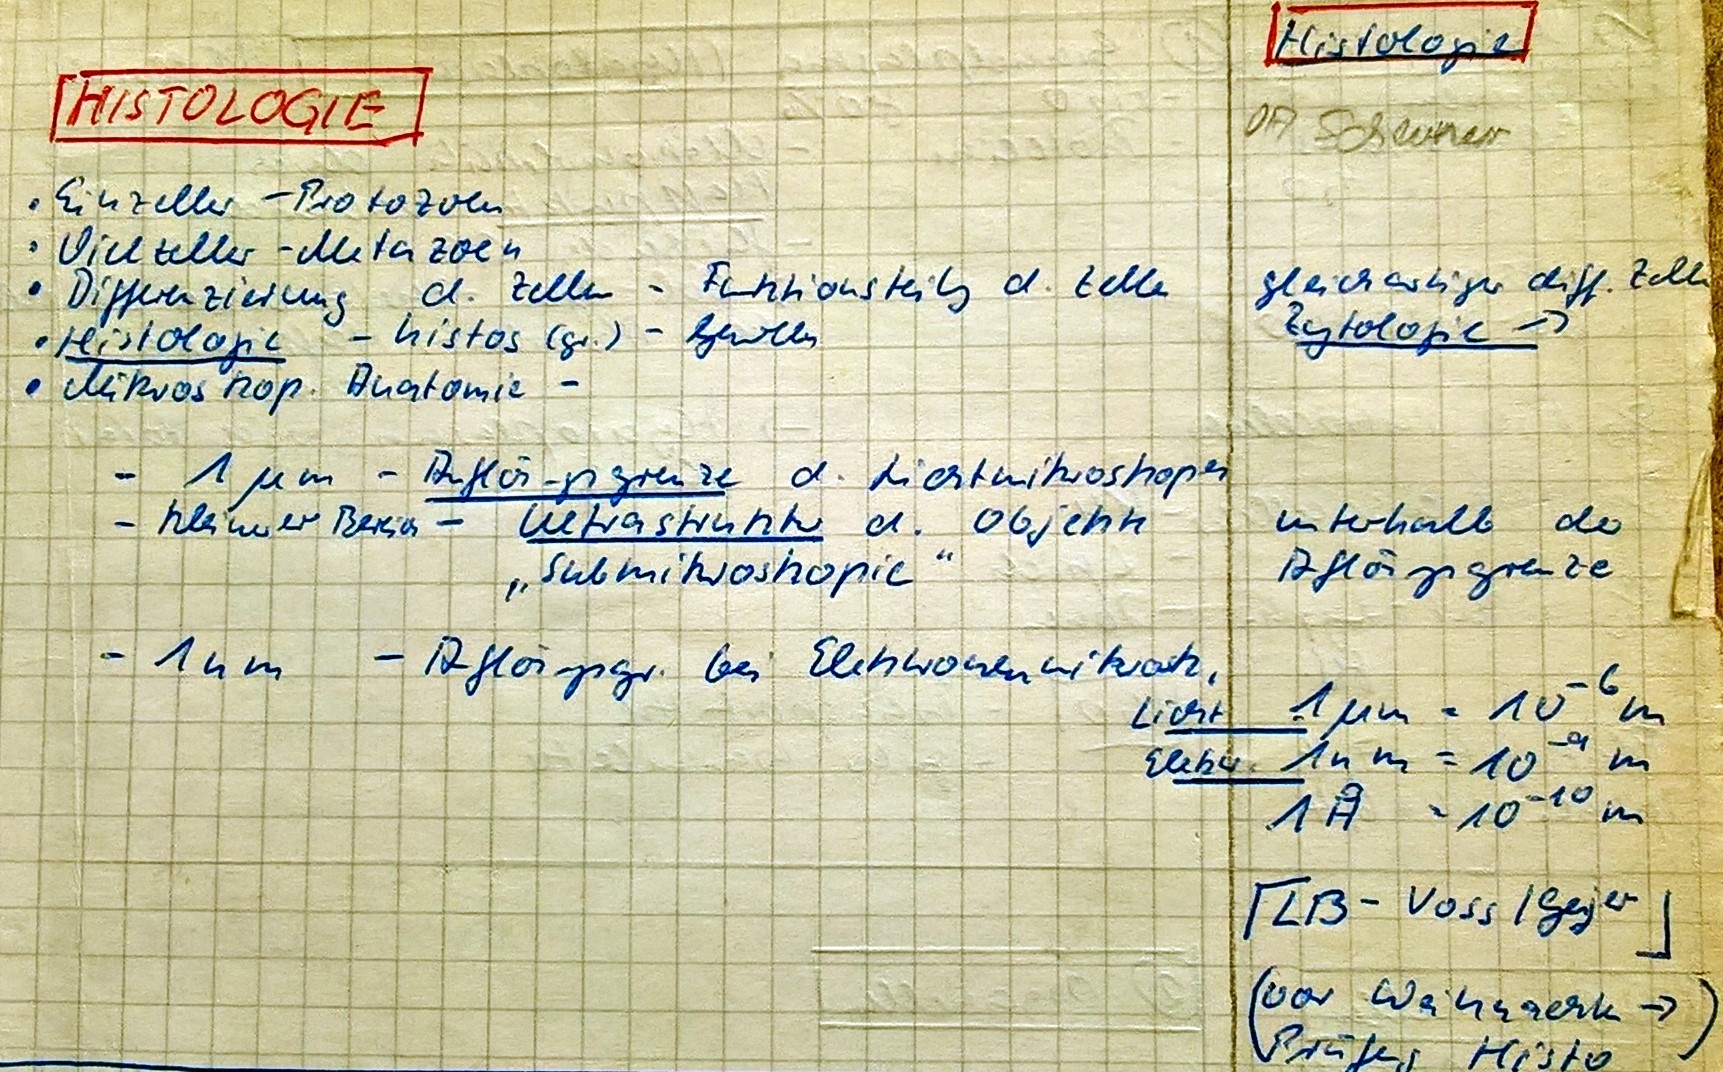 Histologie
HISTOLOGIE
OA Scheuner
• Einzeller - Protozoen
• Vielzeller - Metazoen
• Differenzierung d. Zellen - Funktionsteilg d. Zelle
gleichartiger diff. Zellen
• Histologie - histos (gr.) - Gewebe
Zytologie →
• Mikroskop. Anatomie -
- 1 µm - Auflösungsgrenze d. Lichtmikroskopes
- kleinerer Bereich - Ultrastruktur d. Objekte
unterhalb der
„Submikroskopie“
Auflösungsgrenze
- 1 nm - Auflösungsgr. bei Elektronenmikrosk.
Licht 1 µm = 10⁻⁶ m
Elektr. 1 nm = 10⁻⁹ m
1 Å = 10⁻¹⁰ m
[LB - Voss / Geyer]
(vor Weihnachten →
Prüfung Histo)